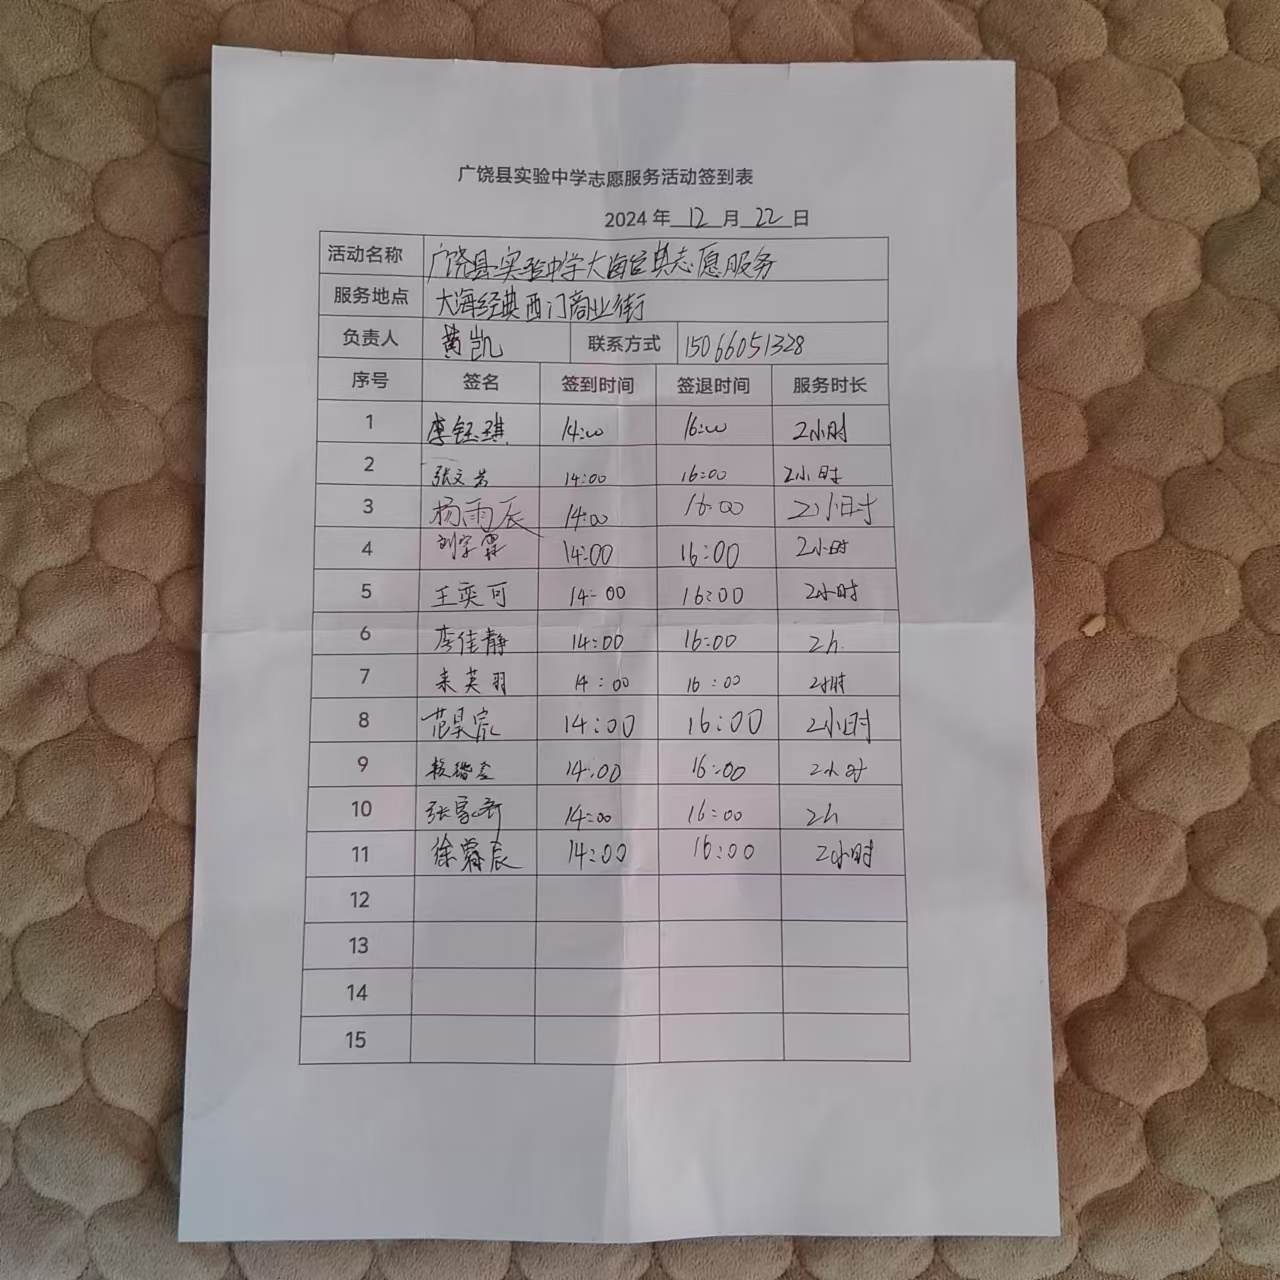 广饶县实验中学志愿服务活动签到表
2024 年 12 月 22 日
活动名称 广饶县实验中学大海 志愿服务
服务地点 大海经典西门商业街
负责人 黄凯 联系方式 15066051328
序号 签名 签到时间 签退时间 服务时长
1 李钰琪 14:00 16:00 2小时
2 张文 14:00 16:00 2小时
3 杨雨辰 14:00 16:00 2小时
4 刘宇霖 14:00 16:00 2小时
5 王奕可 14:00 16:00 2小时
6 李佳静 14:00 16:00 2h.
7 英羽 14:00 16:00 2小时
8 范昊宸 14:00 16:00 2小时
9 14:00 16:00 2小时
10 张家 14:00 16:00 2h
11 徐霖辰 14:00 16:00 2小时
12
13
14
15